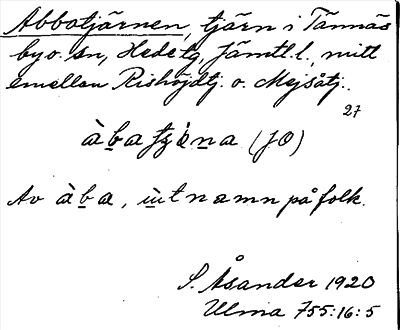 Abbotjärnen, tjärn i Tännäs
by o. sn, Hede tg, Jämtl. l., mitt
emellan Rishöjdtj. o. Mejsåtj.
27
àbatjɛ̀na (JO)
Av àba, ùtnamn på folk.
S. Åsander 1920
Ulma 755:16:5